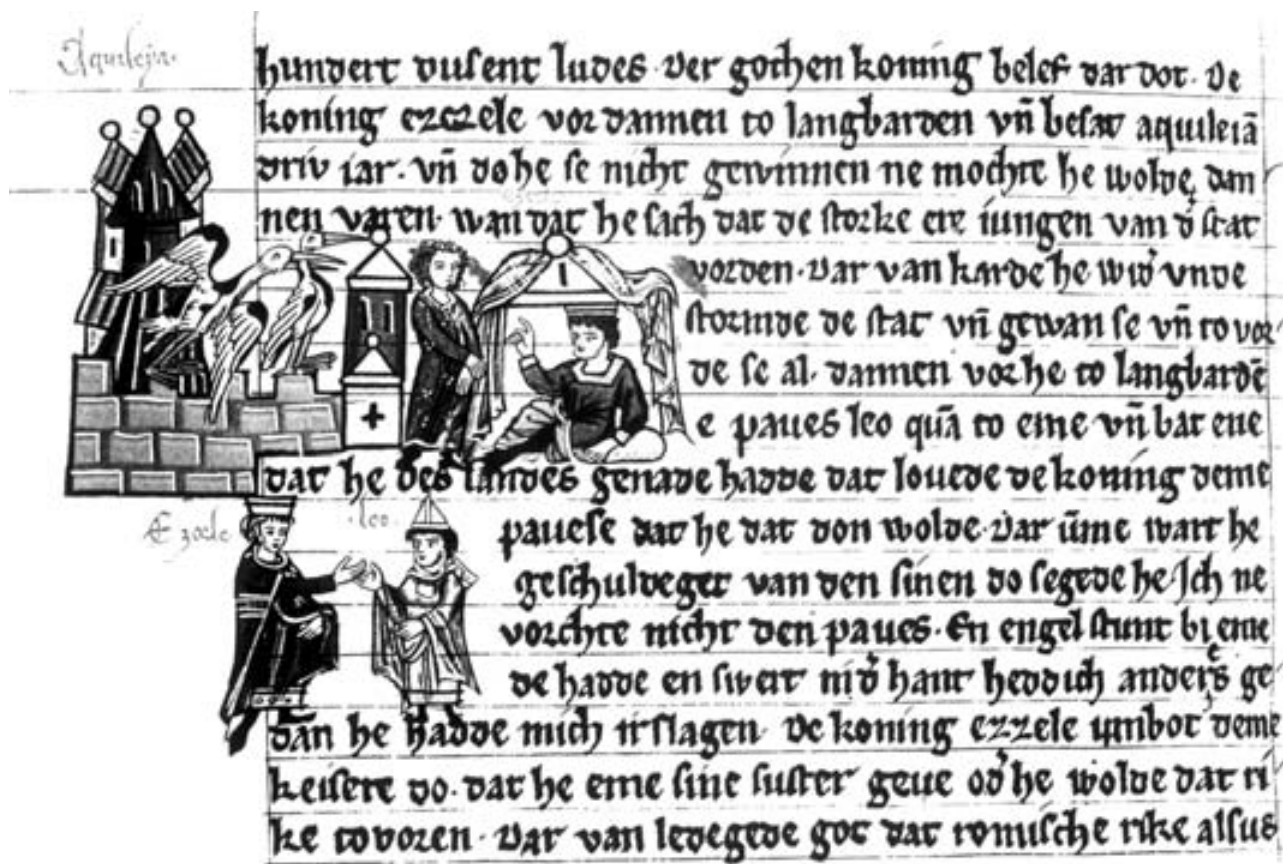 Aquileja.
hundert dusent ludes. Der gothen koning belef dar dot. De
koning ezczele vor dannen to langbarden vn̄ besat aquileiā
driv iar. vn̄ do he se nicht gewinnen ne mochte he wolde dan
nen varen. wan dat he sach dat de storke ere iungen van d' stat
vorden. Dar van karde he wid' vnde
stormde de stat vn̄ gewan se vn̄ to vor
de se al. dannen vor he to langbardē
e paues leo quā to eme vn̄ bat ene
dat he des landes genade hadde dat louede de koning deme
leo.
pauese dat he dat don wolde. Dar ūme wart he
geschuldeget van den sinen do segede he. Ich ne
vorchte nicht den paues. En engel stunt bi eme
de hadde en swert in d' hant heddich anders ge
dan he hadde mich irslagen. De koning ezzele umbot deme
keisere do. dat he eme sine suster geue od' he wolde dat ri
ke tovoren. Dar van ledegede got dat romische rike alsus